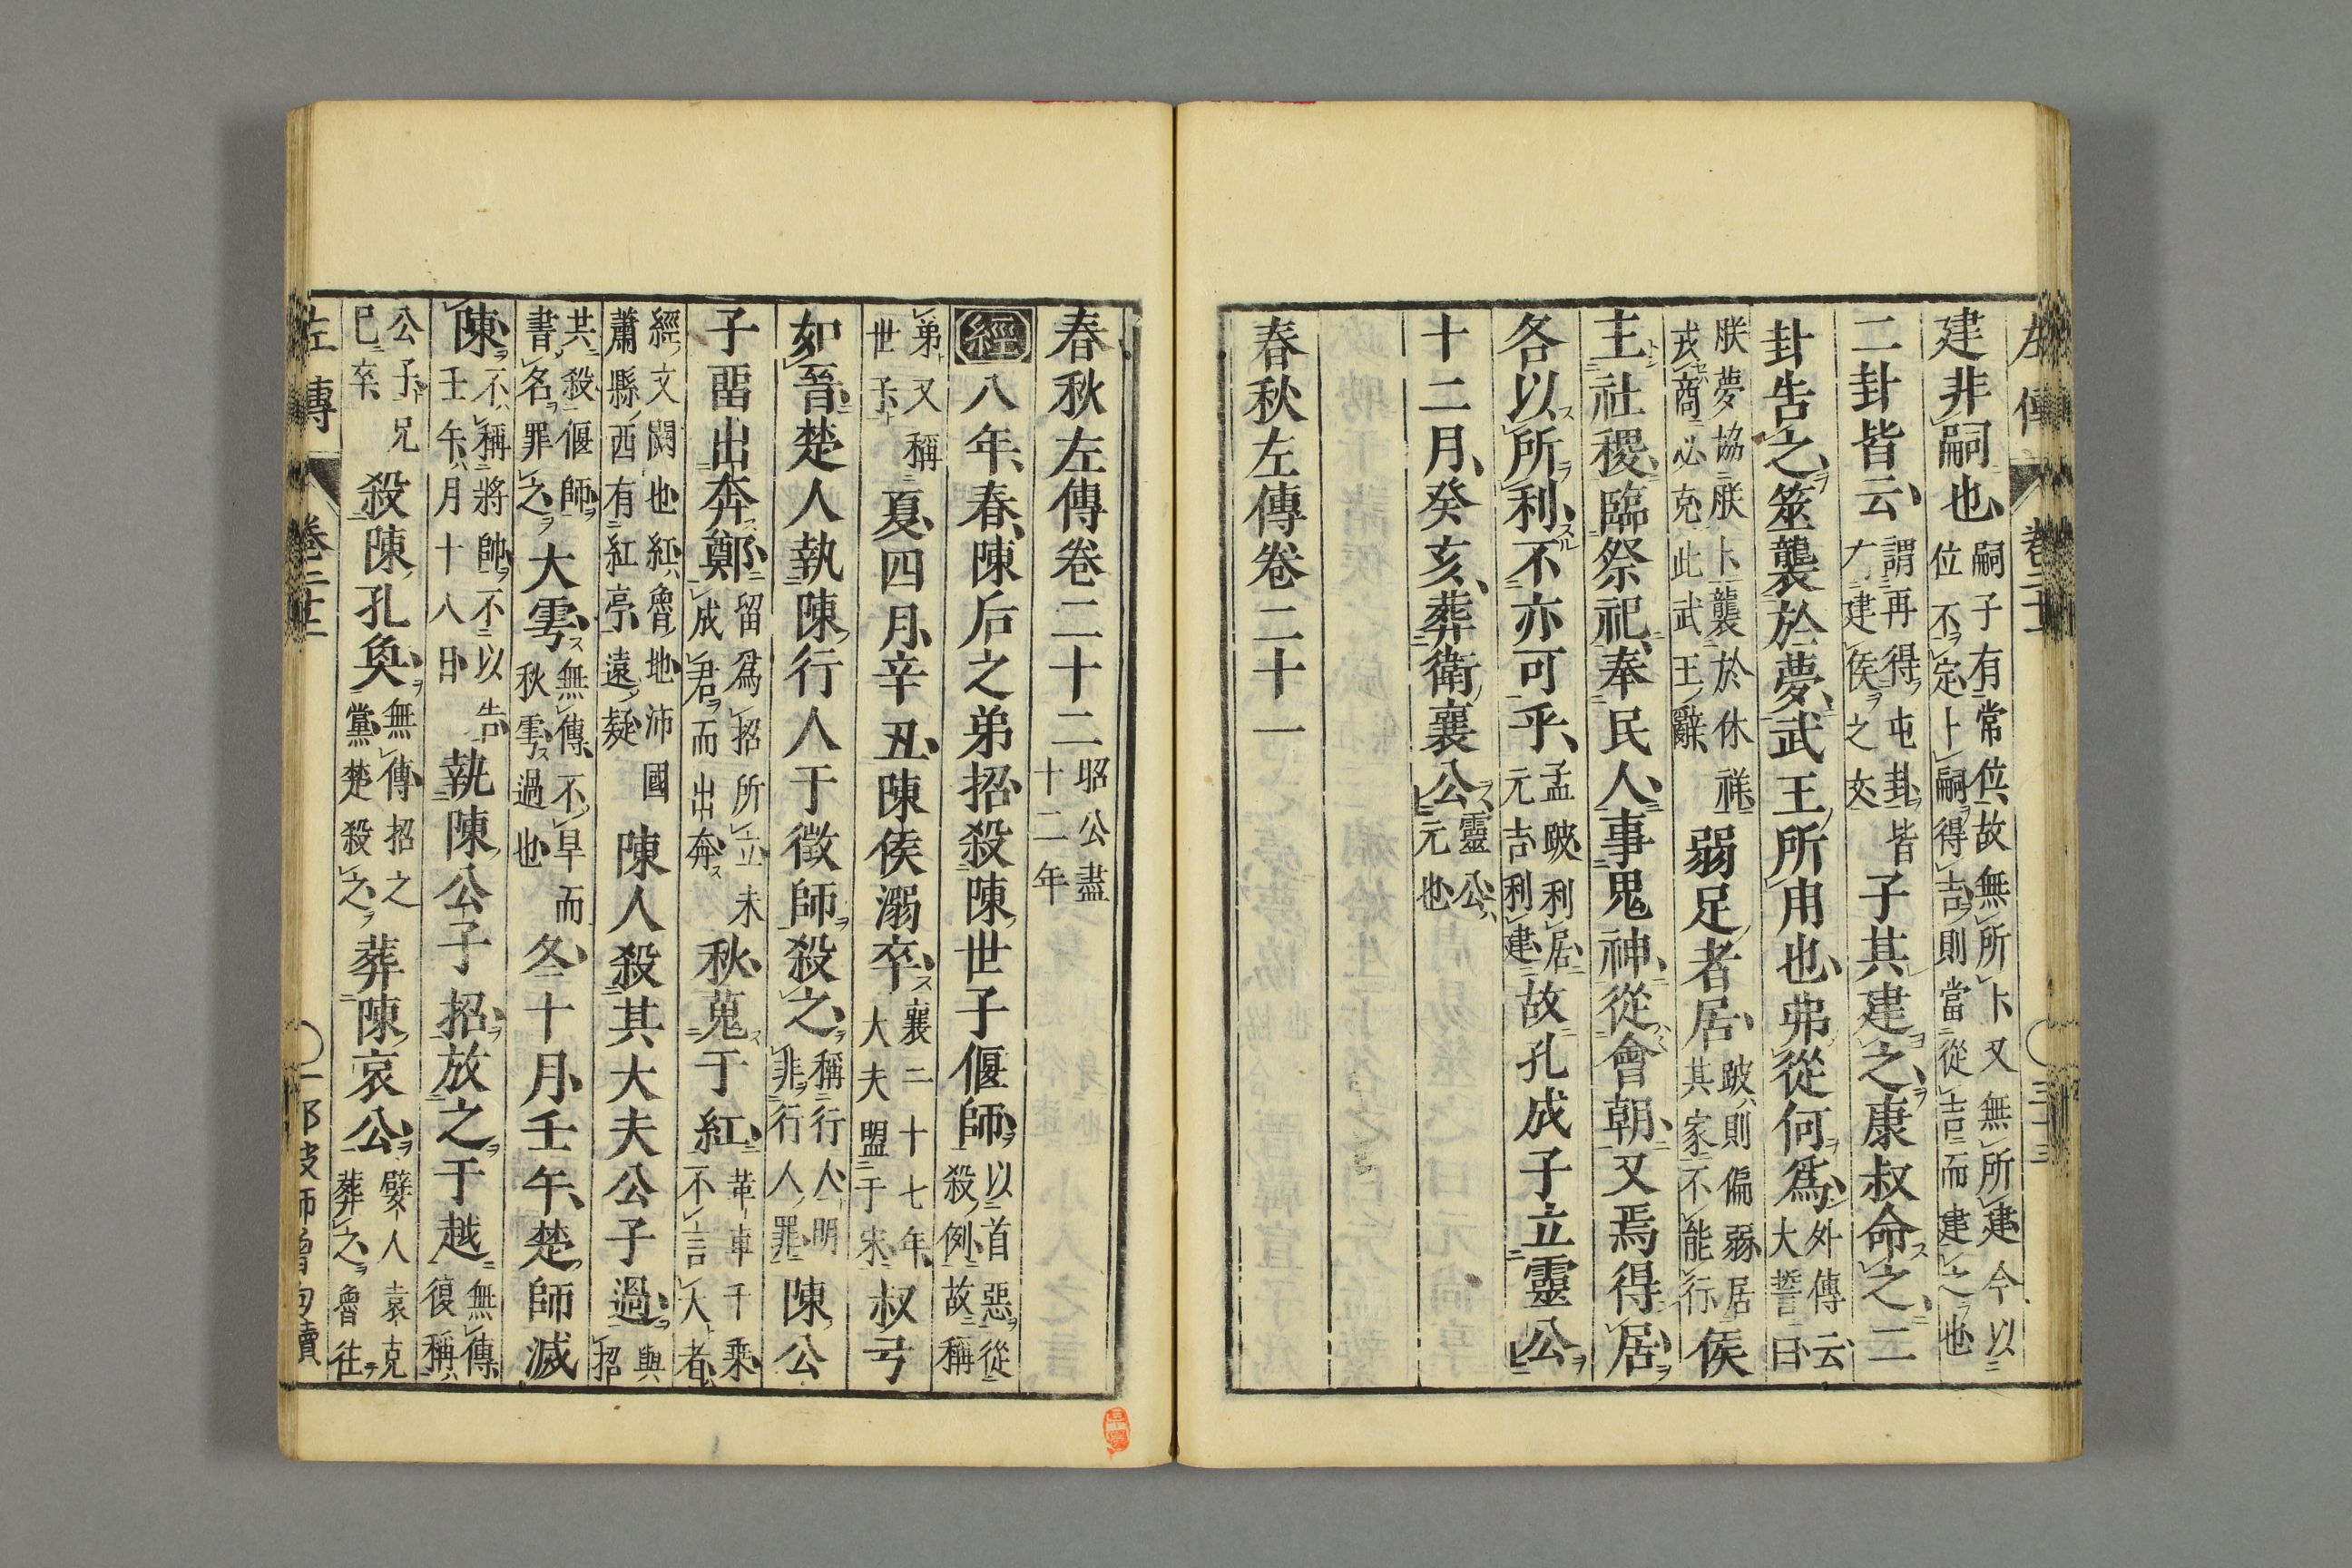 建非嗣也嗣子有常位故無所卜又無所建今以
位不定卜嗣得吉則當從吉而建之也
二卦皆云謂再得屯卦皆
有建侯之文子其建之康叔命之二
卦告之筮襲於夢武王所用也弗從何爲外傳云
大誓曰
朕夢協朕卜襲於休祥
戎商必克此武王辭弱足者居跛則偏弱居
其家不能行侯
主社稷臨祭祀奉民人事鬼神從會朝又焉得居
各以所利不亦可乎孟跛利居
元吉利建故孔成子立靈公
十二月癸亥葬衛襄公靈公
元也
春秋左傳卷二十一
春秋左傳卷二十二昭公盡
十二年
經八年春陳侯之弟招殺陳世子偃師以首惡從
殺例故稱
弟又稱
世子夏四月辛丑陳侯溺卒襄二十七年
大夫盟于宋叔弓
如晉楚人執陳行人于徵師殺之稱行人明
非行人罪陳公
子留出奔鄭留爲招所立未
成君而出奔秋蒐于紅革車千乘
不言大者
經文闕也紅魯地沛國
蕭縣西有紅亭遠疑陳人殺其大夫公子過與招
共殺偃師
書名罪之大雩無傳不旱而
秋雩過也冬十月壬午楚師滅
陳不稱將帥不以告
壬午月十八日執陳公子招放之于越無傳
復稱
公子兄
已卒殺陳孔奐無傳招之
黨楚殺之葬陳哀公嬖人袁克
葬之魯往
左傳 卷二十二 一 那波師曾句讀